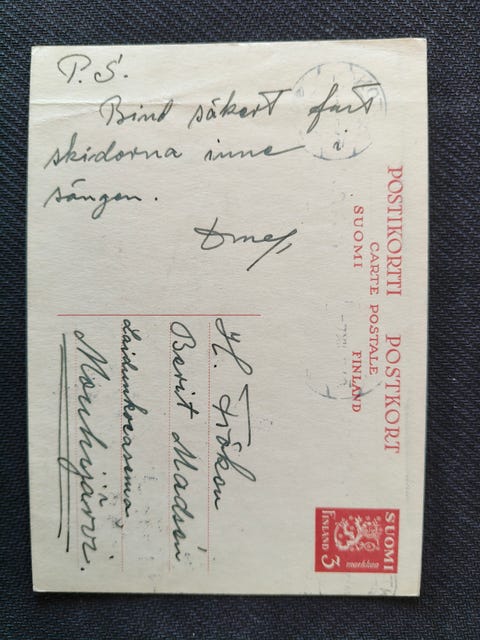 P.S.
Bind säkert fast
skidorna inne i
sängen.
POSTIKORTTI POSTKORT
CARTE POSTALE
SUOMI FINLAND
H. Fröken
Berit Madsén
Mouhijärvi.
SUOMI
markkaa
FINLAND 3